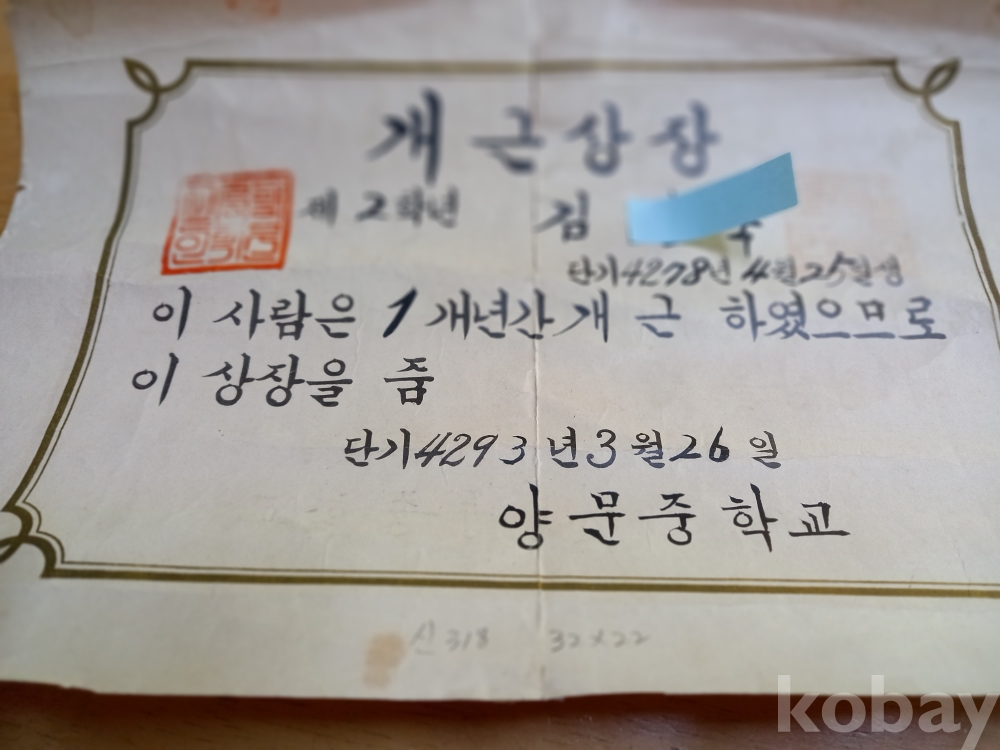 개근상장
제2학년 김
단기4278년 4월25일생
이 사람은 1개년간개근 하였으므로
이 상장을 줌
단기4293년3월26일
양문중학교
신318 32×22
kobay